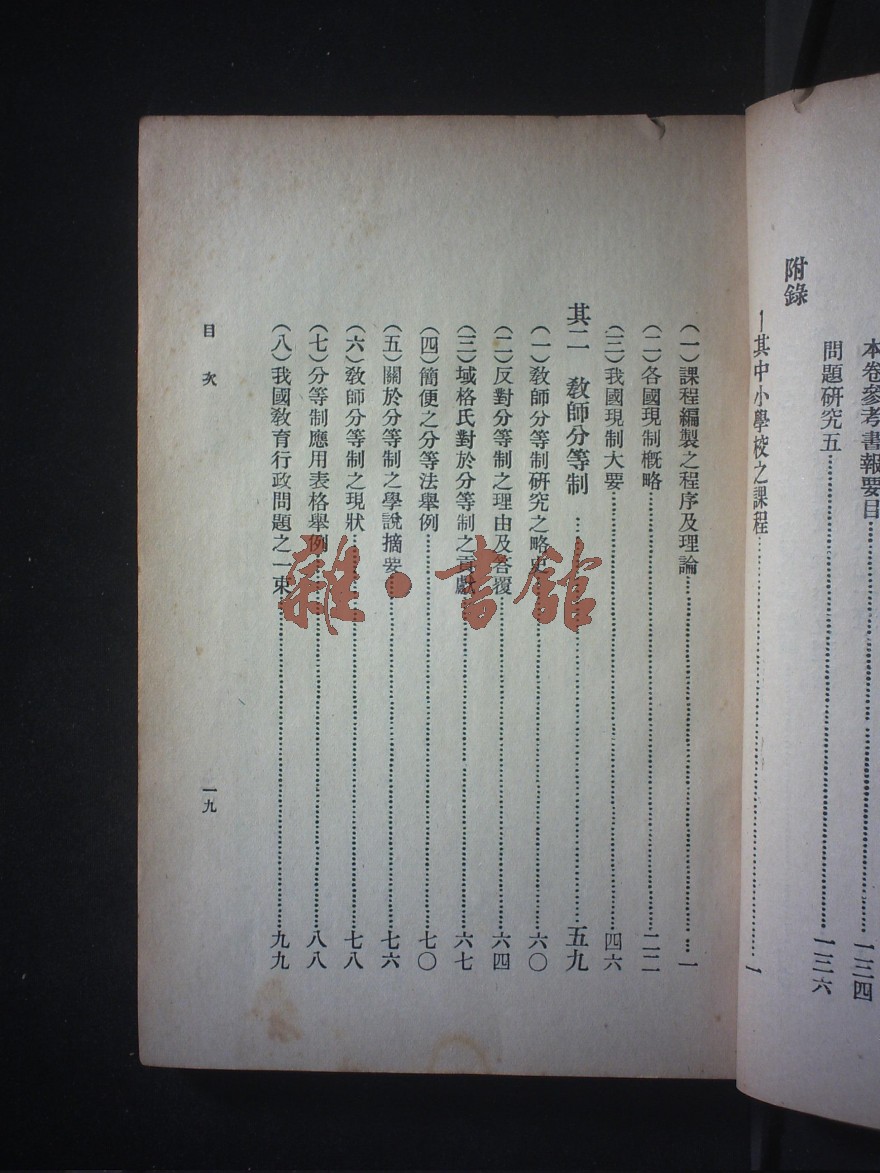 本卷參考書報要目……一三四
問題研究五……一三六
附錄
其中小學校之課程……一
（一）課程編製之程序及理論……一
（二）各國現制概略……二二
（三）我國現制大要……四六
其二 教師分等制……五九
（一）教師分等制研究之略史……六〇
（二）反對分等制之理由及答覆……六四
（三）域格氏對於分等制之貢獻……六七
（四）簡便之分等法舉例……七〇
（五）關於分等制之學說摘要……七六
（六）教師分等制之現狀……七八
（七）分等制應用表格舉例……八八
（八）我國教育行政問題之一束……九九
目次
一九
雜·書館